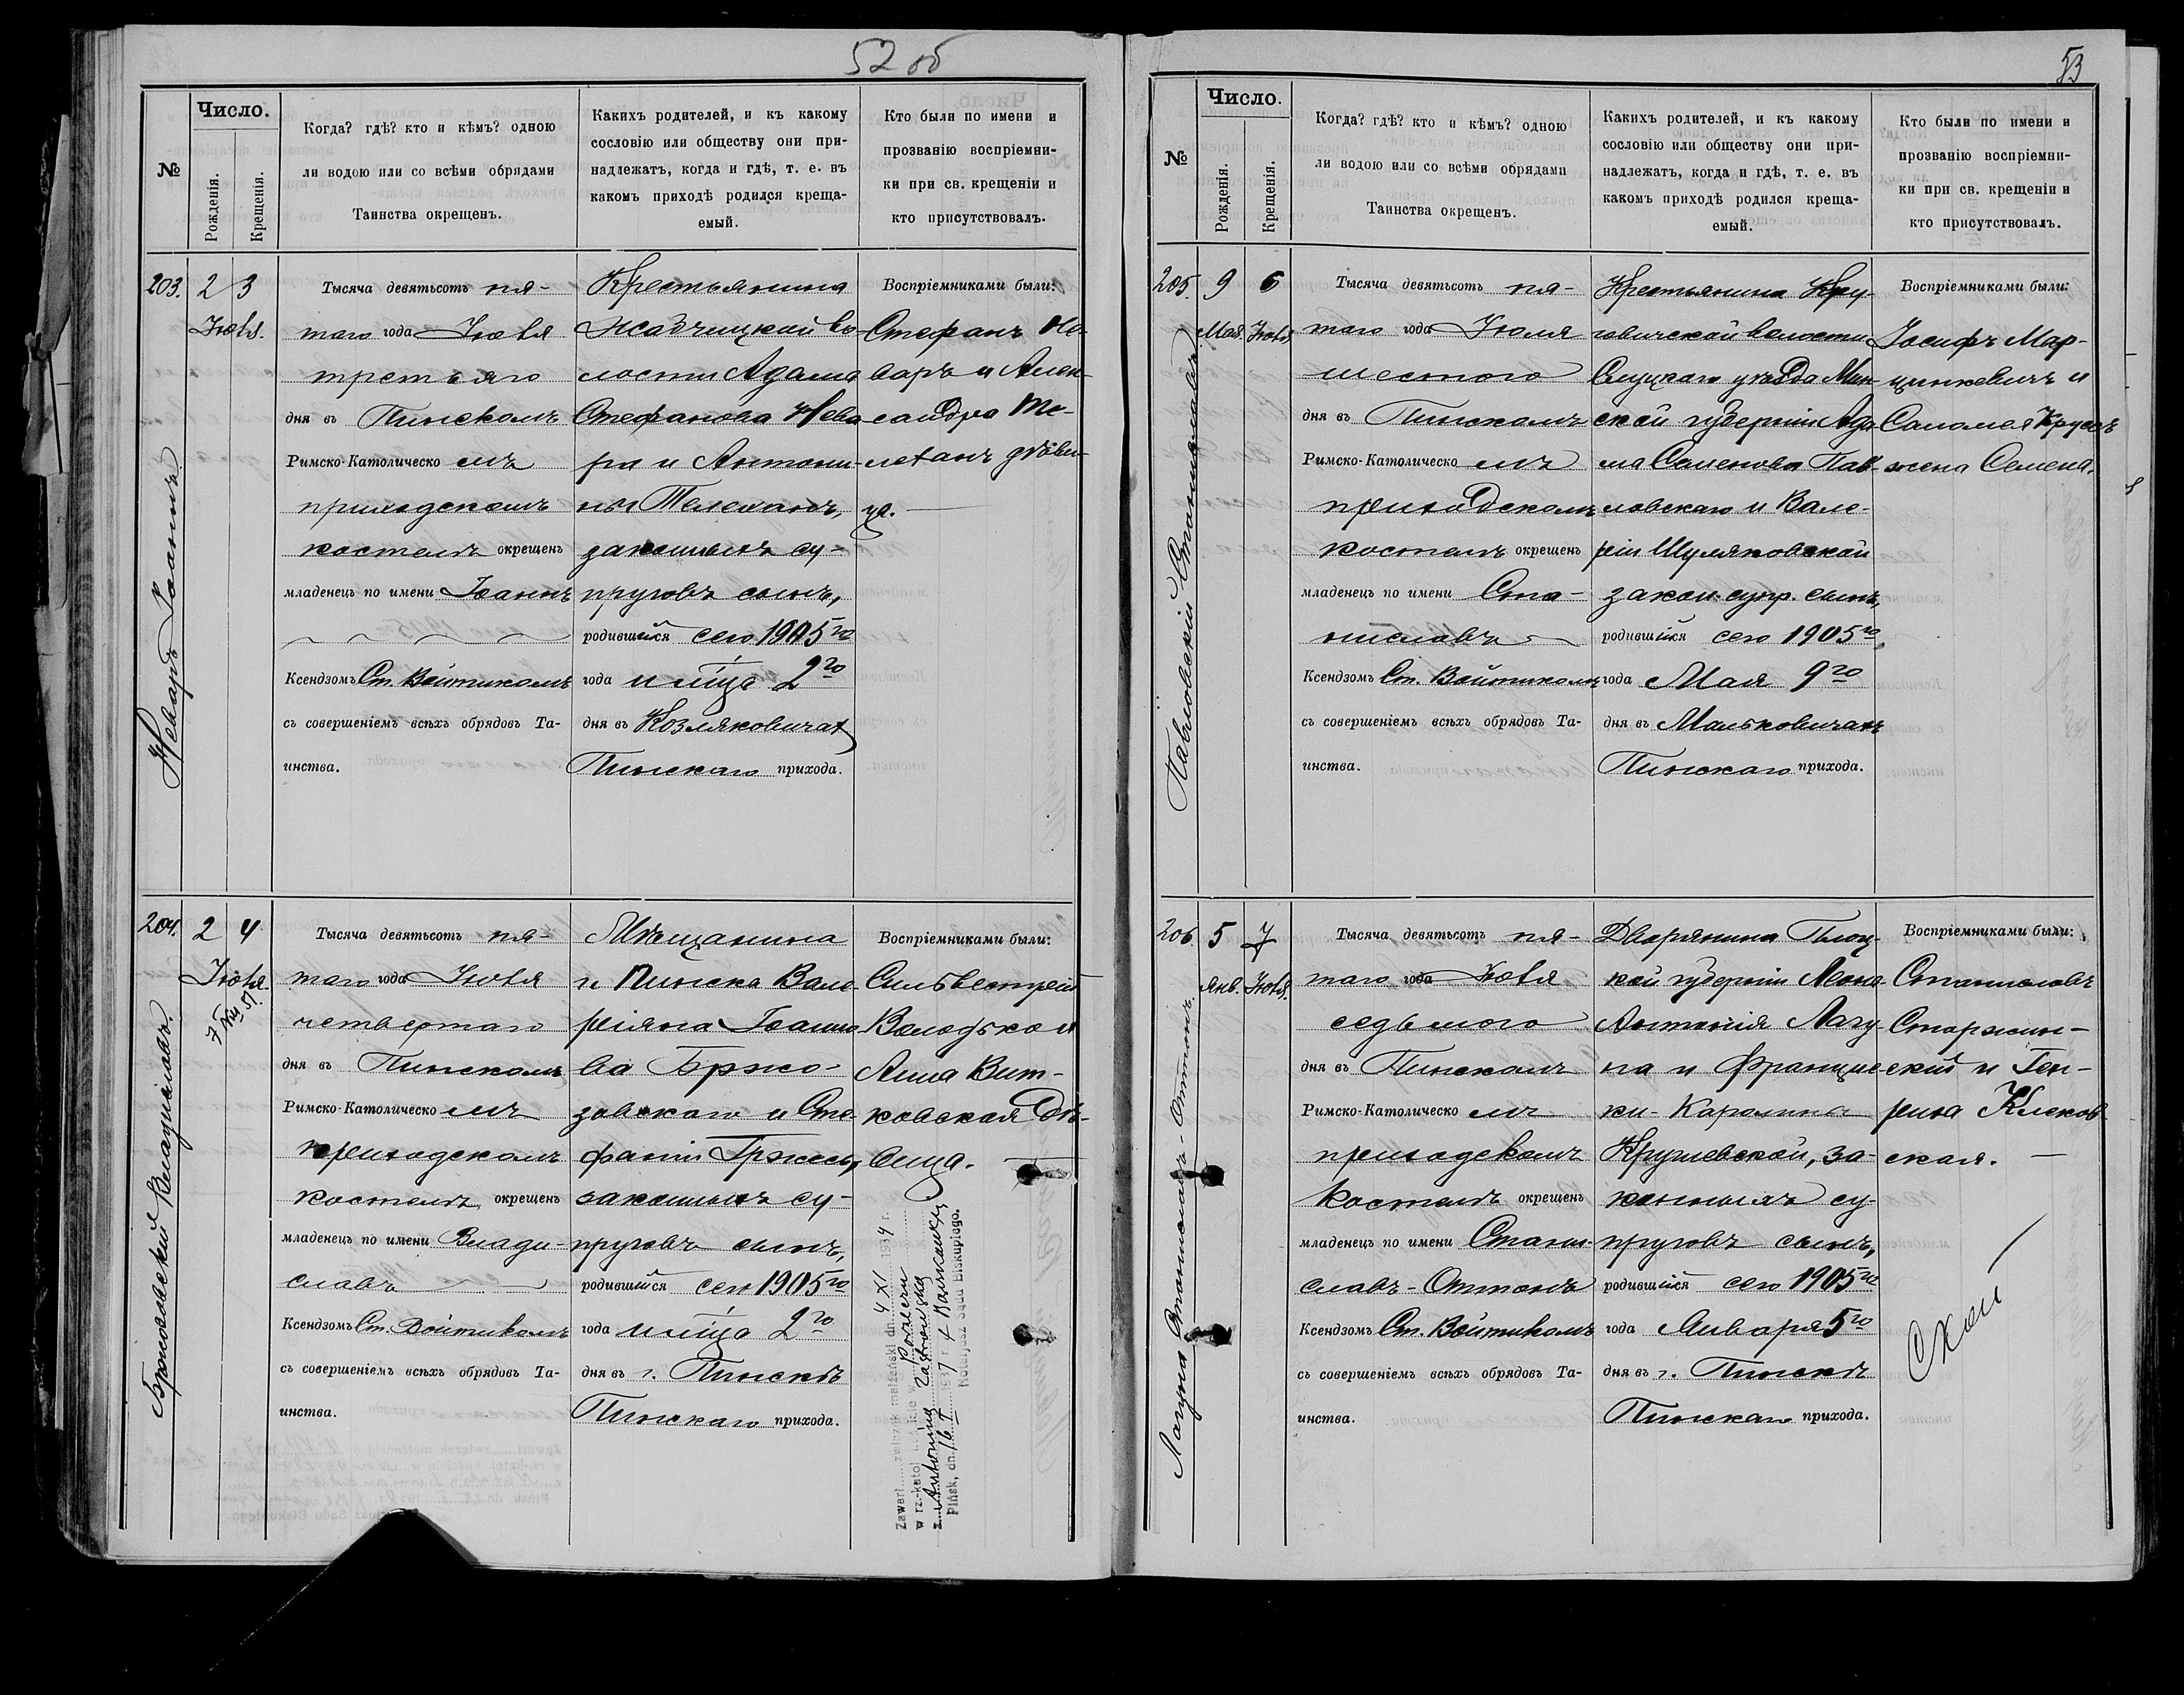 52 об
№
Число.
Рожденія.
Крещенія.
Когда? гдѣ? кто и кѣмъ? одною
ли водою или со всѣми обрядами
Таинства окрещенъ.
Какихъ родителей, и къ какому
сословію или обществу они при-
надлежатъ, когда и гдѣ, т. е. въ
какомъ приходѣ родился креща-
емый.
Кто были по имени и
прозванію воспріемни-
ки при св. крещеніи и
кто присутствовалъ.
203.
2 3
Іюля.
Неваръ Іоаннъ
Тысяча девятьсотъ пя-
таго года Іюля
третьяго
дня въ Пинскомъ
Римско-Католическомъ
приходскомъ
костелѣ окрещенъ
младенецъ по имени Іоаннъ
Ксендзомъ Ст. Войтикомъ
съ совершеніемъ всѣхъ обрядовъ Та-
инства.
Крестьянина
Жабчицкой во-
лости Адама
Стефанова Нева-
ра и Антони-
ны Телеханъ,
законныхъ су-
пруговъ сынъ,
родившійся сего 1905го
года и мѣсца 2го
дня въ Козляковичах
Пинскаго прихода.
Воспріемниками были:
Стефанъ Не-
варъ и Алек-
сандра Те-
леханъ дѣви-
ца.
204.
2 4
Іюля.
Бржозовскій Владиславъ.
Тысяча девятьсотъ пя-
таго года Іюля
четвертаго
дня въ Пинскомъ
Римско-Католическомъ
приходскомъ
костелѣ окрещенъ
младенецъ по имени Влади-
славъ
Ксендзомъ Ст. Войтикомъ
съ совершеніемъ всѣхъ обрядовъ Та-
инства.
Мѣщанина
г. Пинска Вале-
ріяна Іоанно-
ва Бржо-
зовскаго и Сте-
фаніи Гржесь,
законныхъ су-
пруговъ сынъ,
родившійся сего 1905го
года и мѣсца 2го
дня въ г. Пинскѣ
Пинскаго прихода.
Воспріемниками были:
Сильвестрей
Володько и
Анна Вит-
ковская дѣ-
вица.
Zawarł związek małżeński dn. 4 XI 1934 r.
w rz.-katol. kościele w
z Antoniną
Pińsk, dn. 16 1937 r.
Notarjusz Sądu Biskupiego.
53
№
Число.
Рожденія.
Крещенія.
Когда? гдѣ? кто и кѣмъ? одною
ли водою или со всѣми обрядами
Таинства окрещенъ.
Какихъ родителей, и къ какому
сословію или обществу они при-
надлежатъ, когда и гдѣ, т. е. въ
какомъ приходѣ родился креща-
емый.
Кто были по имени и
прозванію воспріемни-
ки при св. крещеніи и
кто присутствовалъ.
205.
9 6
Мая. Іюля
Павловскій Станиславъ.
Тысяча девятьсотъ пя-
таго года Іюля
шестого
дня въ Пинскомъ
Римско-Католическомъ
приходскомъ
костелѣ окрещенъ
младенецъ по имени Ста-
ниславъ
Ксендзомъ Ст. Войтикомъ
съ совершеніемъ всѣхъ обрядовъ Та-
инства.
Крестьянина Кру-
говичской волости
Слуцкаго уѣзда Мин-
ской губерніи Ада-
ма Семенова Пав-
ловскаго и Вале-
ріи Шуляковской
закон. супр. сынъ,
родившійся сего 1905го
года Мая 9го
дня въ Мальковичахъ
Пинскаго прихода.
Воспріемниками были:
Іосифъ Мар-
цинкевичъ и
Саломея Круссъ
жена Семена.
206.
5 7
Янв. Іюля.
Лагуна Станиславъ-Оттонъ.
Тысяча девятьсотъ пя-
таго года Іюля
седьмого
дня въ Пинскомъ
Римско-Католическомъ
приходскомъ
костелѣ окрещенъ
младенецъ по имени Стани-
славъ-Оттонъ
Ксендзомъ Ст. Войтикомъ
съ совершеніемъ всѣхъ обрядовъ Та-
инства.
Дворянина Плоц-
кой губерніи Леона-
Антонія Лагу-
на и Францис-
ки-Каролины
Крушевской, за-
конныхъ су-
пруговъ сынъ,
родившійся сего 1905го
года Января 5го
дня въ г. Пинскѣ
Пинскаго прихода.
Воспріемниками были:
Станиславъ
Старжин-
скій и Ген-
рика
ская.